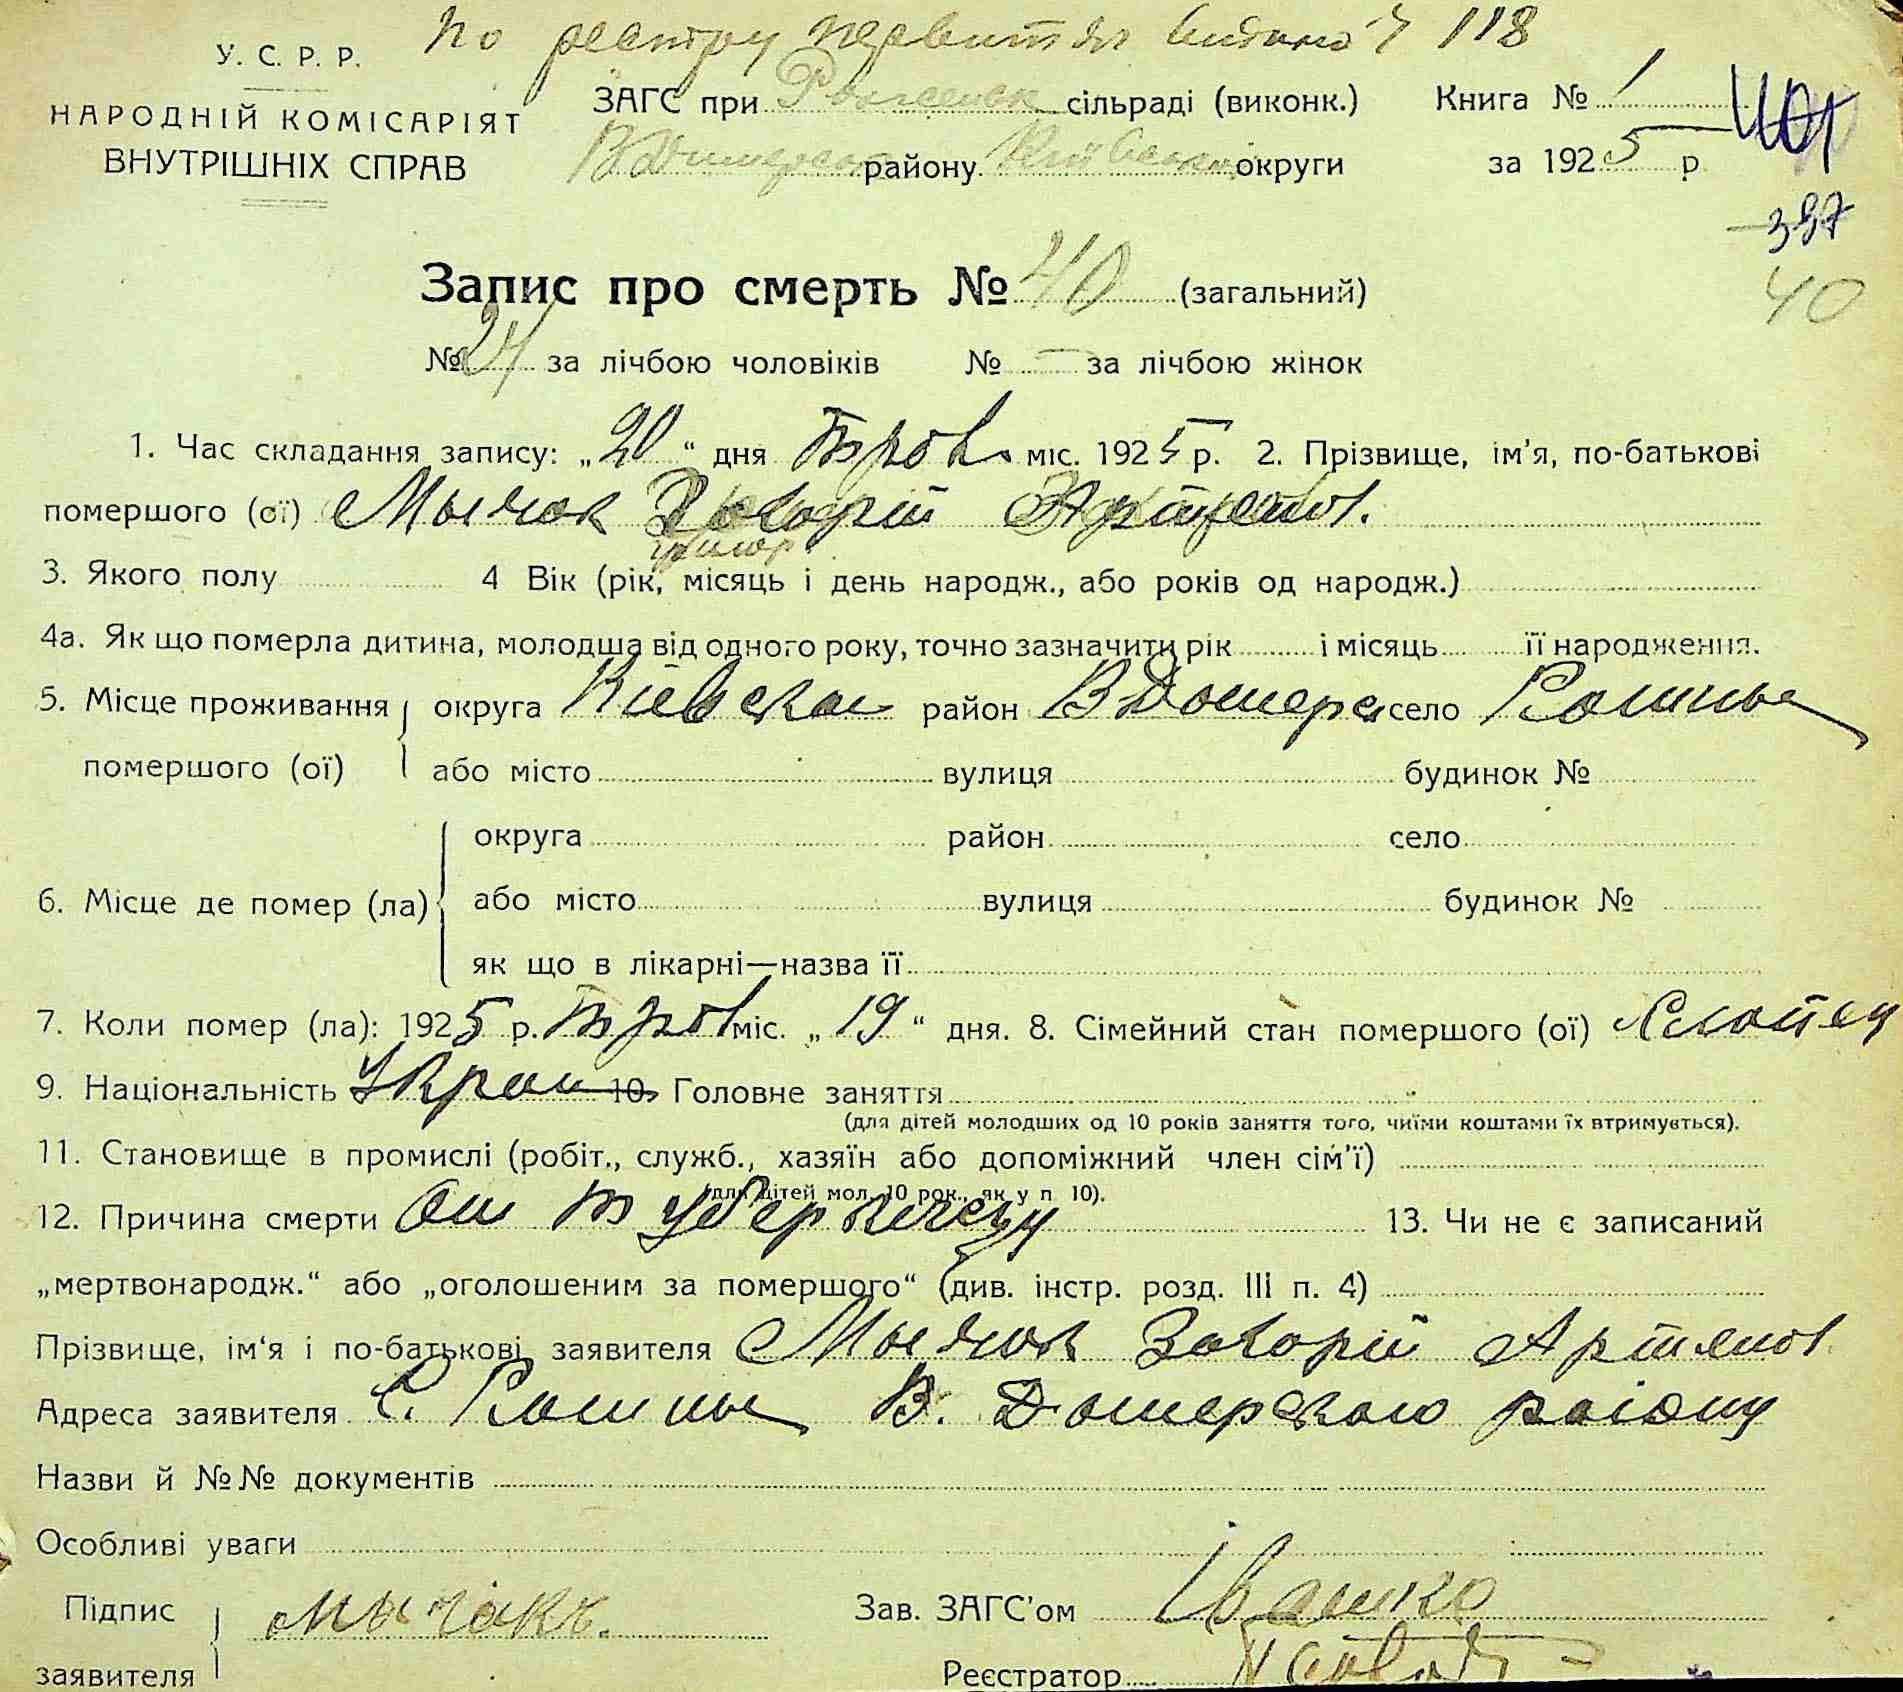 По реєстру 118
У. С. Р. Р.
НАРОДНІЙ КОМІСАРІЯТ
ВНУТРІШНІХ СПРАВ
ЗАГС при сільраді (виконк.)
В Димерськ району Київської округи
Книга № 1
за 1925 р.
397
40
Запис про смерть № 40 (загальний)
№ 24 за лічбою чоловіків № — за лічбою жінок
1. Час складання запису: „20“ дня Тров. міс. 1925 р. 2. Прізвище, ім'я, по-батькові
помершого (ої) Мычак
3. Якого полу 4 Вік (рік, місяць і день народж., або років од народж.)
4а. Як що померла дитина, молодша від одного року, точно зазначити рік і місяць її народження.
5. Місце проживання округа Київска район В Домерс село
помершого (ої) або місто вулиця будинок №
округа район село
6. Місце де помер (ла) або місто вулиця будинок №
як що в лікарні—назва її
7. Коли помер (ла): 1925 р. Тров міс. „19“ дня. 8. Сімейний стан помершого (ої) Хлопец
9. Національність Украи 10. Головне заняття
(для дітей молодших од 10 років заняття того, чиїми коштами їх втримується).
11. Становище в промислі (робіт., служб., хазяїн або допоміжний член сім'ї)
(для дітей мол. 10 рок., як у п 10).
12. Причина смерти От туберкулезу 13. Чи не є записаний
„мертвонародж.“ або „оголошеним за помершого“ (див. інстр. розд. III п. 4)
Прізвище, ім'я і по-батькові заявителя Мычак Захорій Артемов
Адреса заявителя С. В. Домерского району
Назви й №№ документів
Особливі уваги
Підпис Мычакъ. Зав. ЗАГС'ом Івашко
заявителя Реєстратор